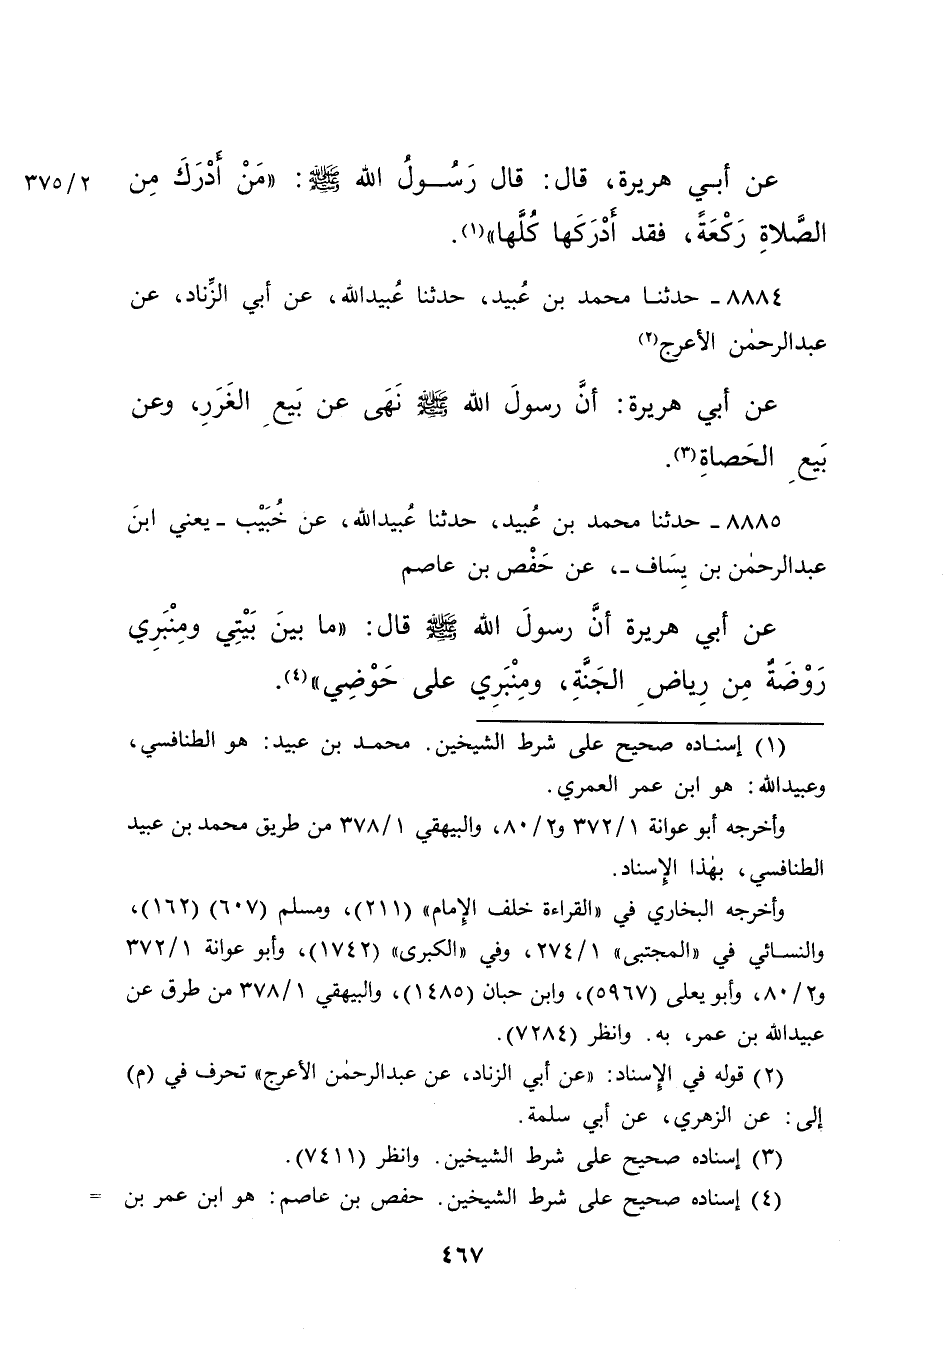 عن أبي هريرة، قال: قال رَسُولُ الله ﷺ: «مَنْ أَدْرَكَ مِن ٣٧٥/٢
الصَّلاةِ رَكْعَةً، فقد أَدْرَكَها كُلَّها»(١).
٨٨٨٤ ـ حدثنا محمد بن عُبيد، حدثنا عُبيدالله، عن أبي الزِّناد، عن
عبدالرحمٰن الأعرج(٢)
عن أبي هريرة: أنَّ رسولَ الله ﷺ نَهَى عن بَيعِ الغَرَرِ، وعن
بَيعِ الحَصاةِ(٣).
٨٨٨٥ ـ حدثنا محمد بن عُبيد، حدثنا عُبيدالله، عن خُبَيْب ـ يعني ابنَ
عبدالرحمٰن بن يِسَاف ـ، عن حَفْص بن عاصم
عن أبي هريرة أنَّ رسولَ الله ﷺ قال: «ما بينَ بَيْتِي ومِنْبَرِي
رَوْضَةٌ مِن رِياضِ الجَنَّةِ، ومِنْبَرِي على حَوْضِي»(٤).
(١) إسناده صحيح على شرط الشيخين. محمد بن عبيد: هو الطنافسي،
وعبيدالله: هو ابن عمر العمري.
وأخرجه أبو عوانة ٣٧٢/١ و٨٠/٢، والبيهقي ٣٧٨/١ من طريق محمد بن عبيد
الطنافسي، بهٰذا الإسناد.
وأخرجه البخاري في «القراءة خلف الإمام» (٢١١)، ومسلم (٦٠٧) (١٦٢)،
والنسائي في «المجتبى» ٢٧٤/١، وفي «الكبرى» (١٧٤٢)، وأبو عوانة ٣٧٢/١
و٨٠/٢، وأبو يعلى (٥٩٦٧)، وابن حبان (١٤٨٥)، والبيهقي ٣٧٨/١ من طرق عن
عبيدالله بن عمر، به. وانظر (٧٢٨٤).
(٢) قوله في الإسناد: «عن أبي الزناد، عن عبدالرحمٰن الأعرج» تحرف في (م)
إلى: عن الزهري، عن أبي سلمة.
(٣) إسناده صحيح على شرط الشيخين. وانظر (٧٤١١).
(٤) إسناده صحيح على شرط الشيخين. حفص بن عاصم: هو ابن عمر بن =
٤٦٧